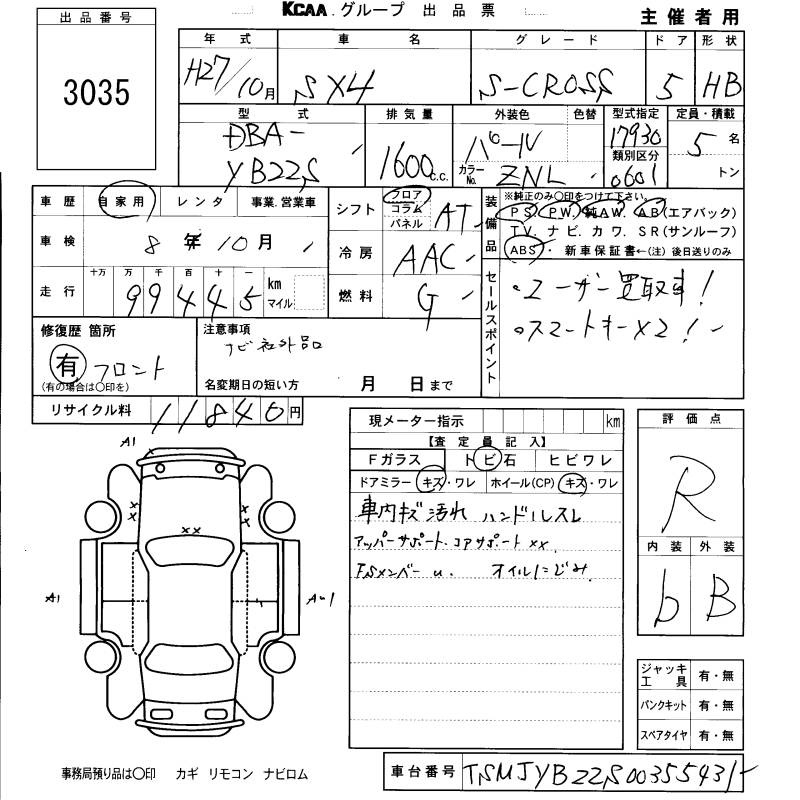 KCAA グループ 出品票
主催者用
出品番号
3035
年式 車名 グレード ドア 形状
H27/10月 SX4 S-CROSS 5 HB
型式 排気量 外装色 色替 型式指定 定員・積載
DBA-YB22S 1600c.c. パール 17930 5名
カラーNo. ZNL 類別区分 0601 トン
車歴 自家用 レンタ 事業.営業車
車検 8年10月
走行 十万 万 千 百 十 一 km マイル
99445
シフト フロア コラム パネル AT
冷房 AAC
燃料 G
装備品 ※純正のみ○印をつけて下さい。
PS. PW. 純AW. AB(エアバック)
TV. ナビ. カワ. SR(サンルーフ)
ABS・新車保証書←(注)後日送りのみ
セールスポイント
・ユーザー買取車!
・スマートキーX2!
修復歴 箇所
有 フロント
(有の場合は○印を)
注意事項
ナビ社外品
名変期日の短い方 月 日まで
リサイクル料 11840円
現メーター指示 km
【査定員記入】
Fガラス トビ石 ヒビワレ
ドアミラー キズ・ワレ ホイール(CP) キズ・ワレ
車内キズ汚れ ハンドルスレ
アッパーサポート.コアサポートxx.
FSメンバーu. オイルにじみ.
評価点
R
内装 外装
b B
A1
xx
xx
xx
A1
ジャッキ工具 有・無
パンクキット 有・無
スペアタイヤ 有・無
事務局預り品は○印 カギ リモコン ナビロム
車台番号 TSMJYB22S00355431